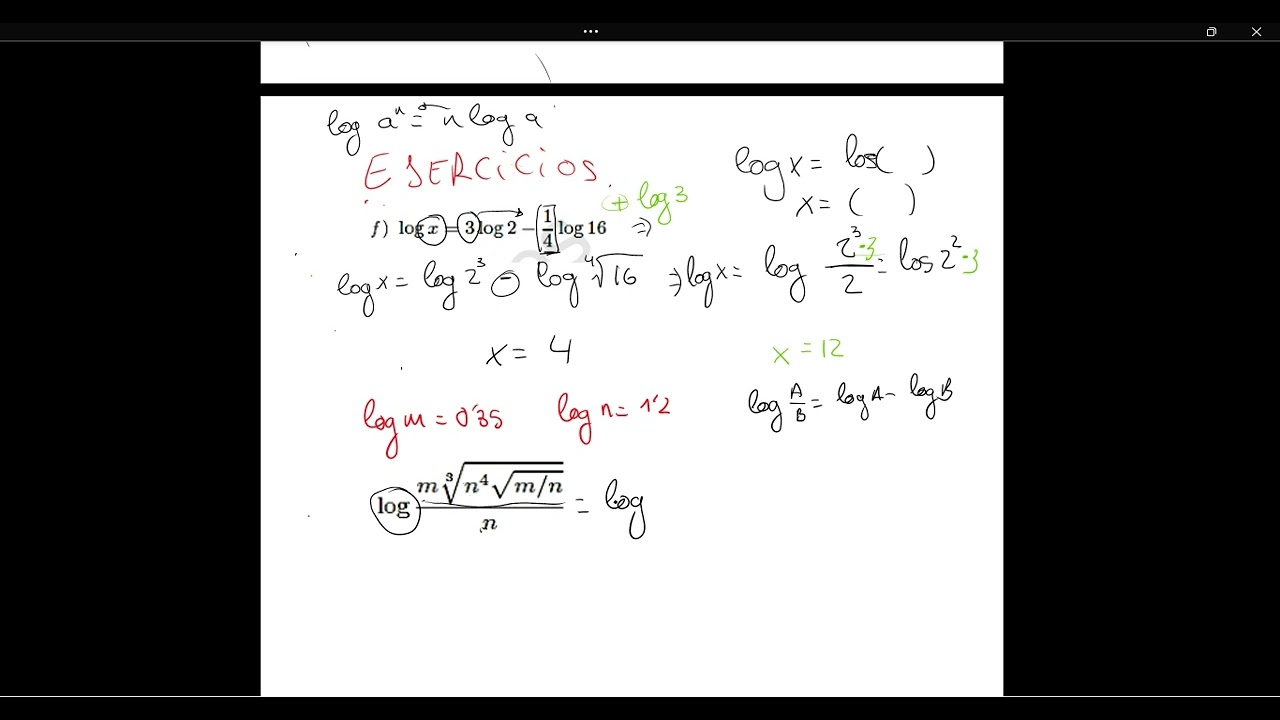 log aⁿ = n log a
EJERCiCiOS
log x = log( )
x = ( )
+ log 3
f) log x = 3 log 2 − 1/4 log 16 ⇒
log x = log 2³ − log ⁴√16 ⇒ log x = log 2³·3/2 = log 2²·3
x = 4
x = 12
log A/B = log A − log B
log m = 0'35 log n = 1'2
log m ³√(n⁴ √(m/n)) / n = log